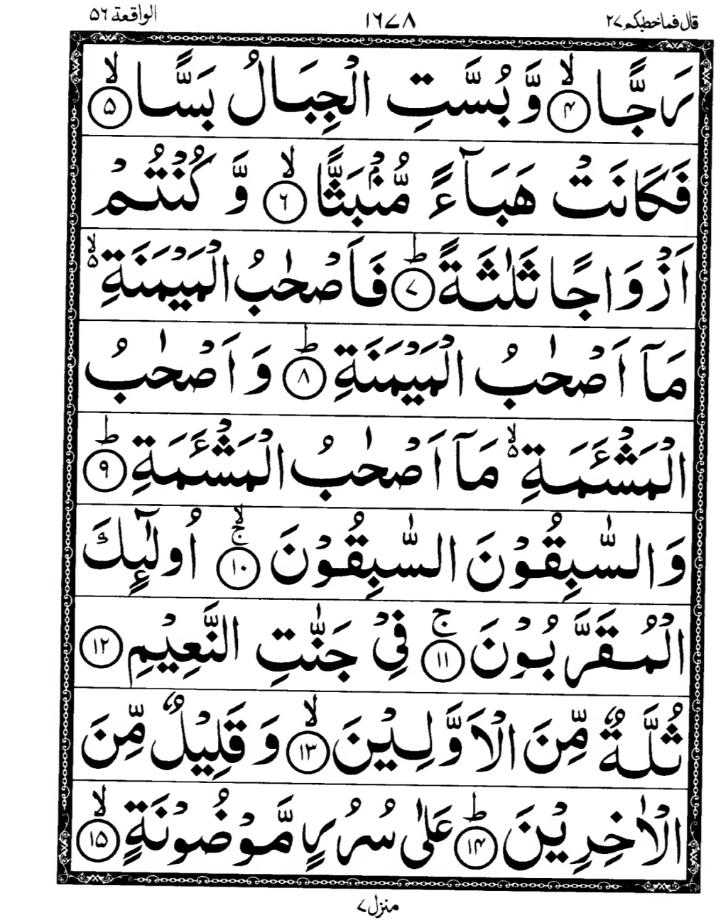 قال فماخطبکم ۲۷ ۱۶۷۸ الواقعة ۵۶
رَجًّا ۙ﴿۴﴾ وَّ بُسَّتِ الْجِبَالُ بَسًّا ۙ﴿۵﴾
فَكَانَتْ هَبَآءً مُّنْۢبَثًّا ۙ﴿۶﴾ وَّ كُنْتُمْ
اَزْوَاجًا ثَلٰثَةً ؕ﴿۷﴾ فَاَصْحٰبُ الْمَيْمَنَةِ ۙ۬
مَاۤ اَصْحٰبُ الْمَيْمَنَةِ ؕ﴿۸﴾ وَ اَصْحٰبُ
الْمَشْـَٔمَةِ ۙ۬ مَاۤ اَصْحٰبُ الْمَشْـَٔمَةِ ؕ﴿۹﴾
وَالسّٰبِقُوْنَ السّٰبِقُوْنَ ۚۙ﴿۱۰﴾ اُولٰٓئِكَ
الْمُقَرَّبُوْنَ ۚ﴿۱۱﴾ فِيْ جَنّٰتِ النَّعِيْمِ ﴿۱۲﴾
ثُلَّةٌ مِّنَ الْاَوَّلِيْنَ ۙ﴿۱۳﴾ وَ قَلِيْلٌ مِّنَ
الْاٰخِرِيْنَ ؕ﴿۱۴﴾ عَلٰى سُرُرٍ مَّوْضُوْنَةٍ ۙ﴿۱۵﴾
منزل ۷